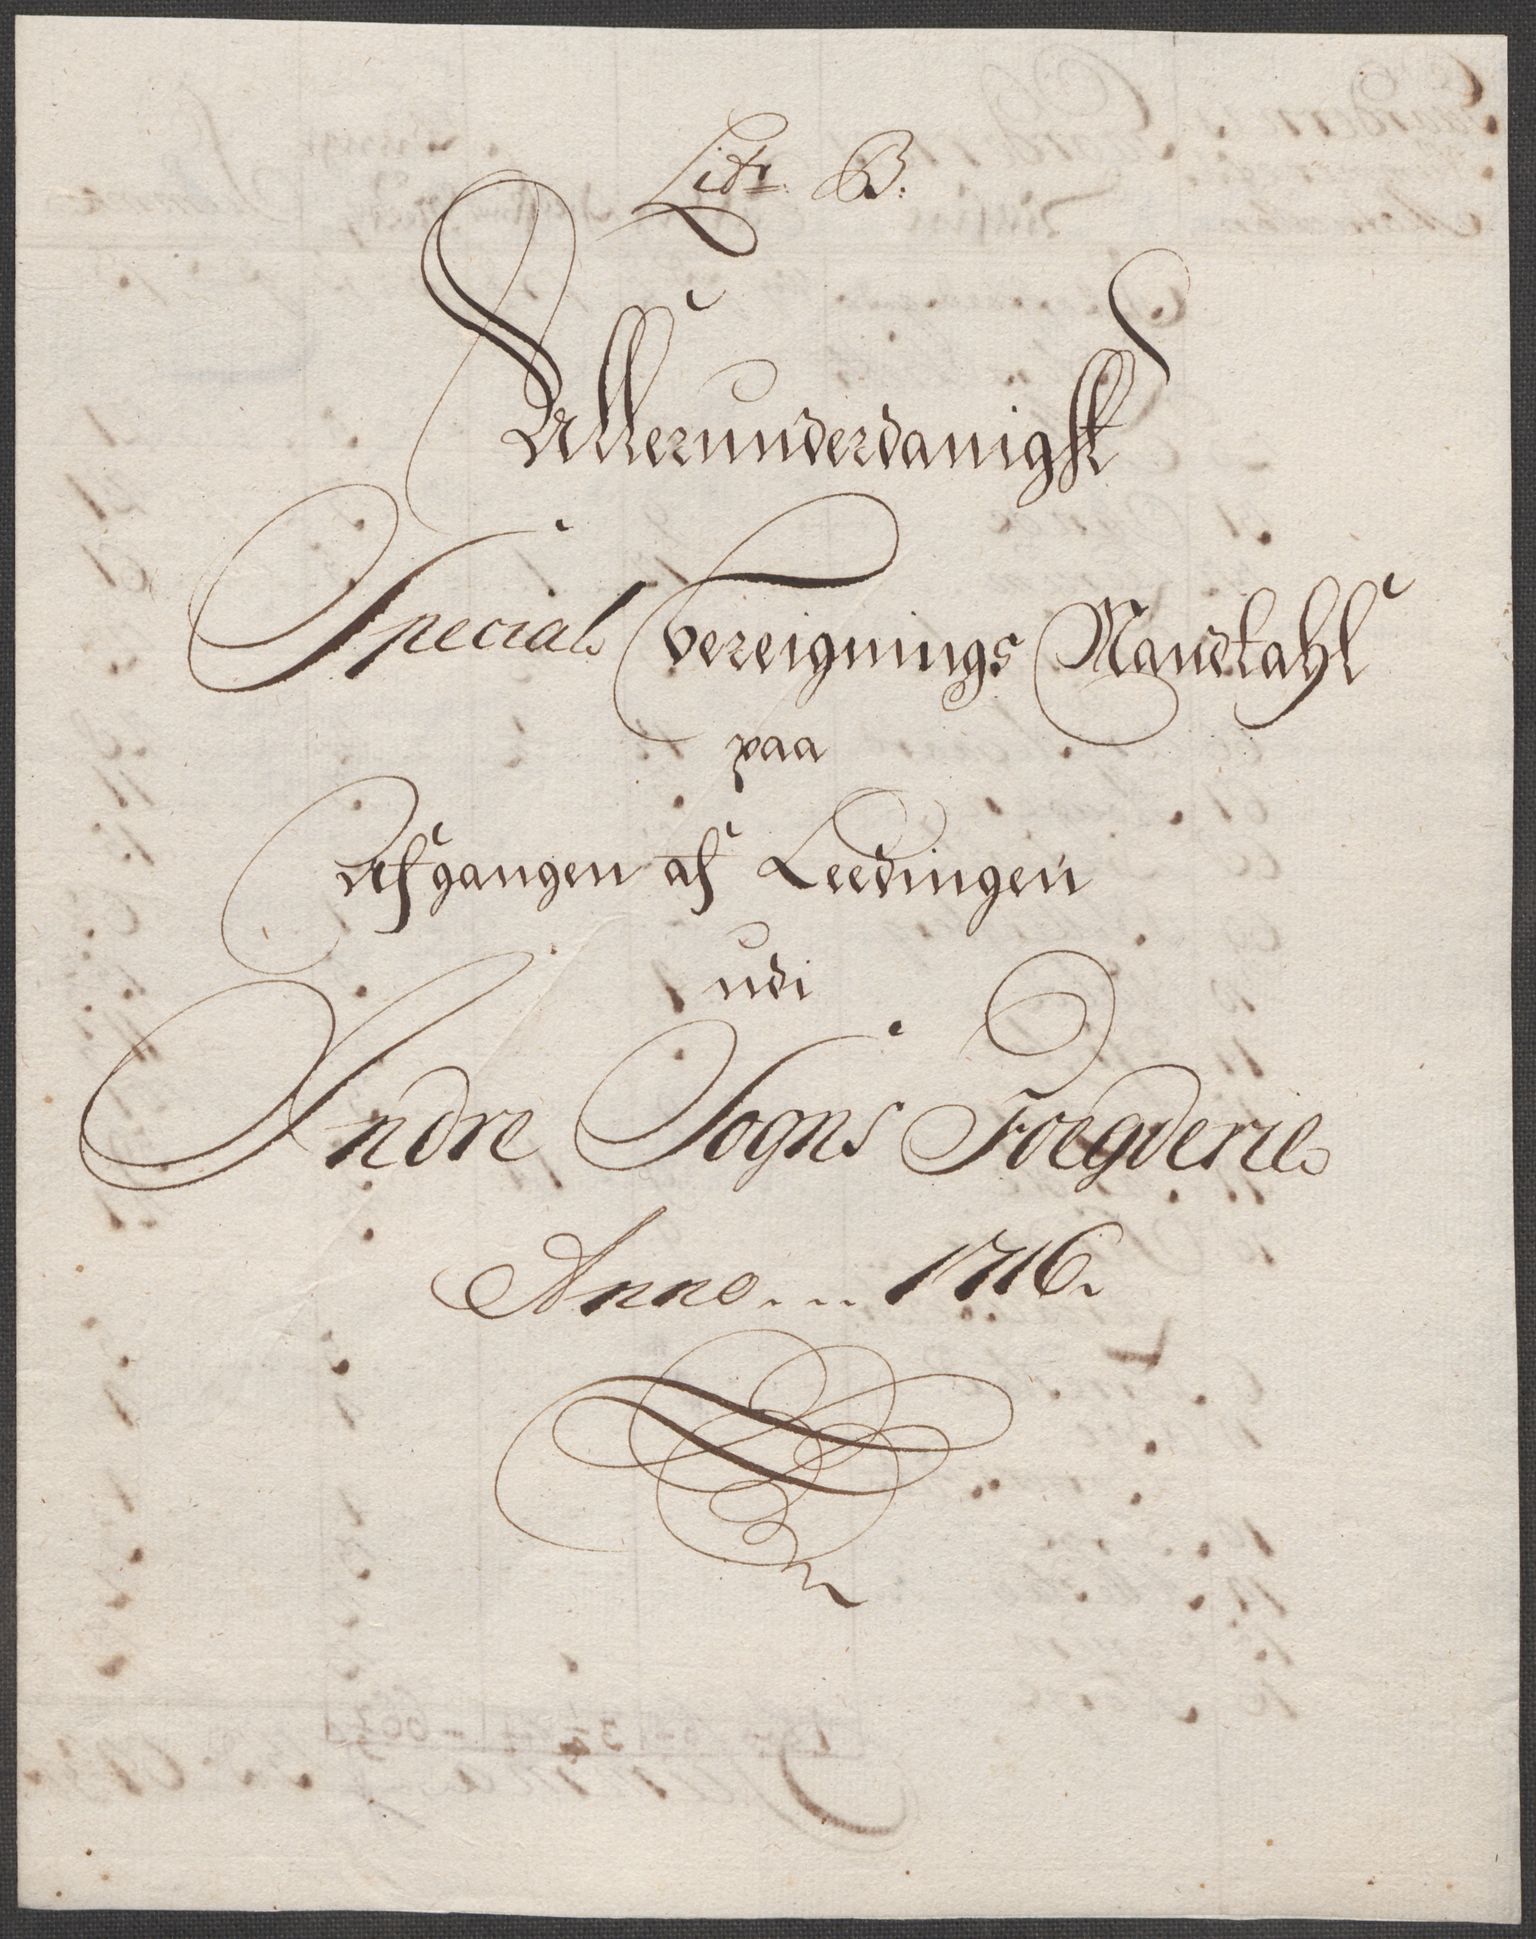 Litr. B.
Allerunderdanigst
Special Vereignings Mandtahl
paa
Afgangen af Leedingen
udi
Indre Sogns Foegderie
Anno... 1716.